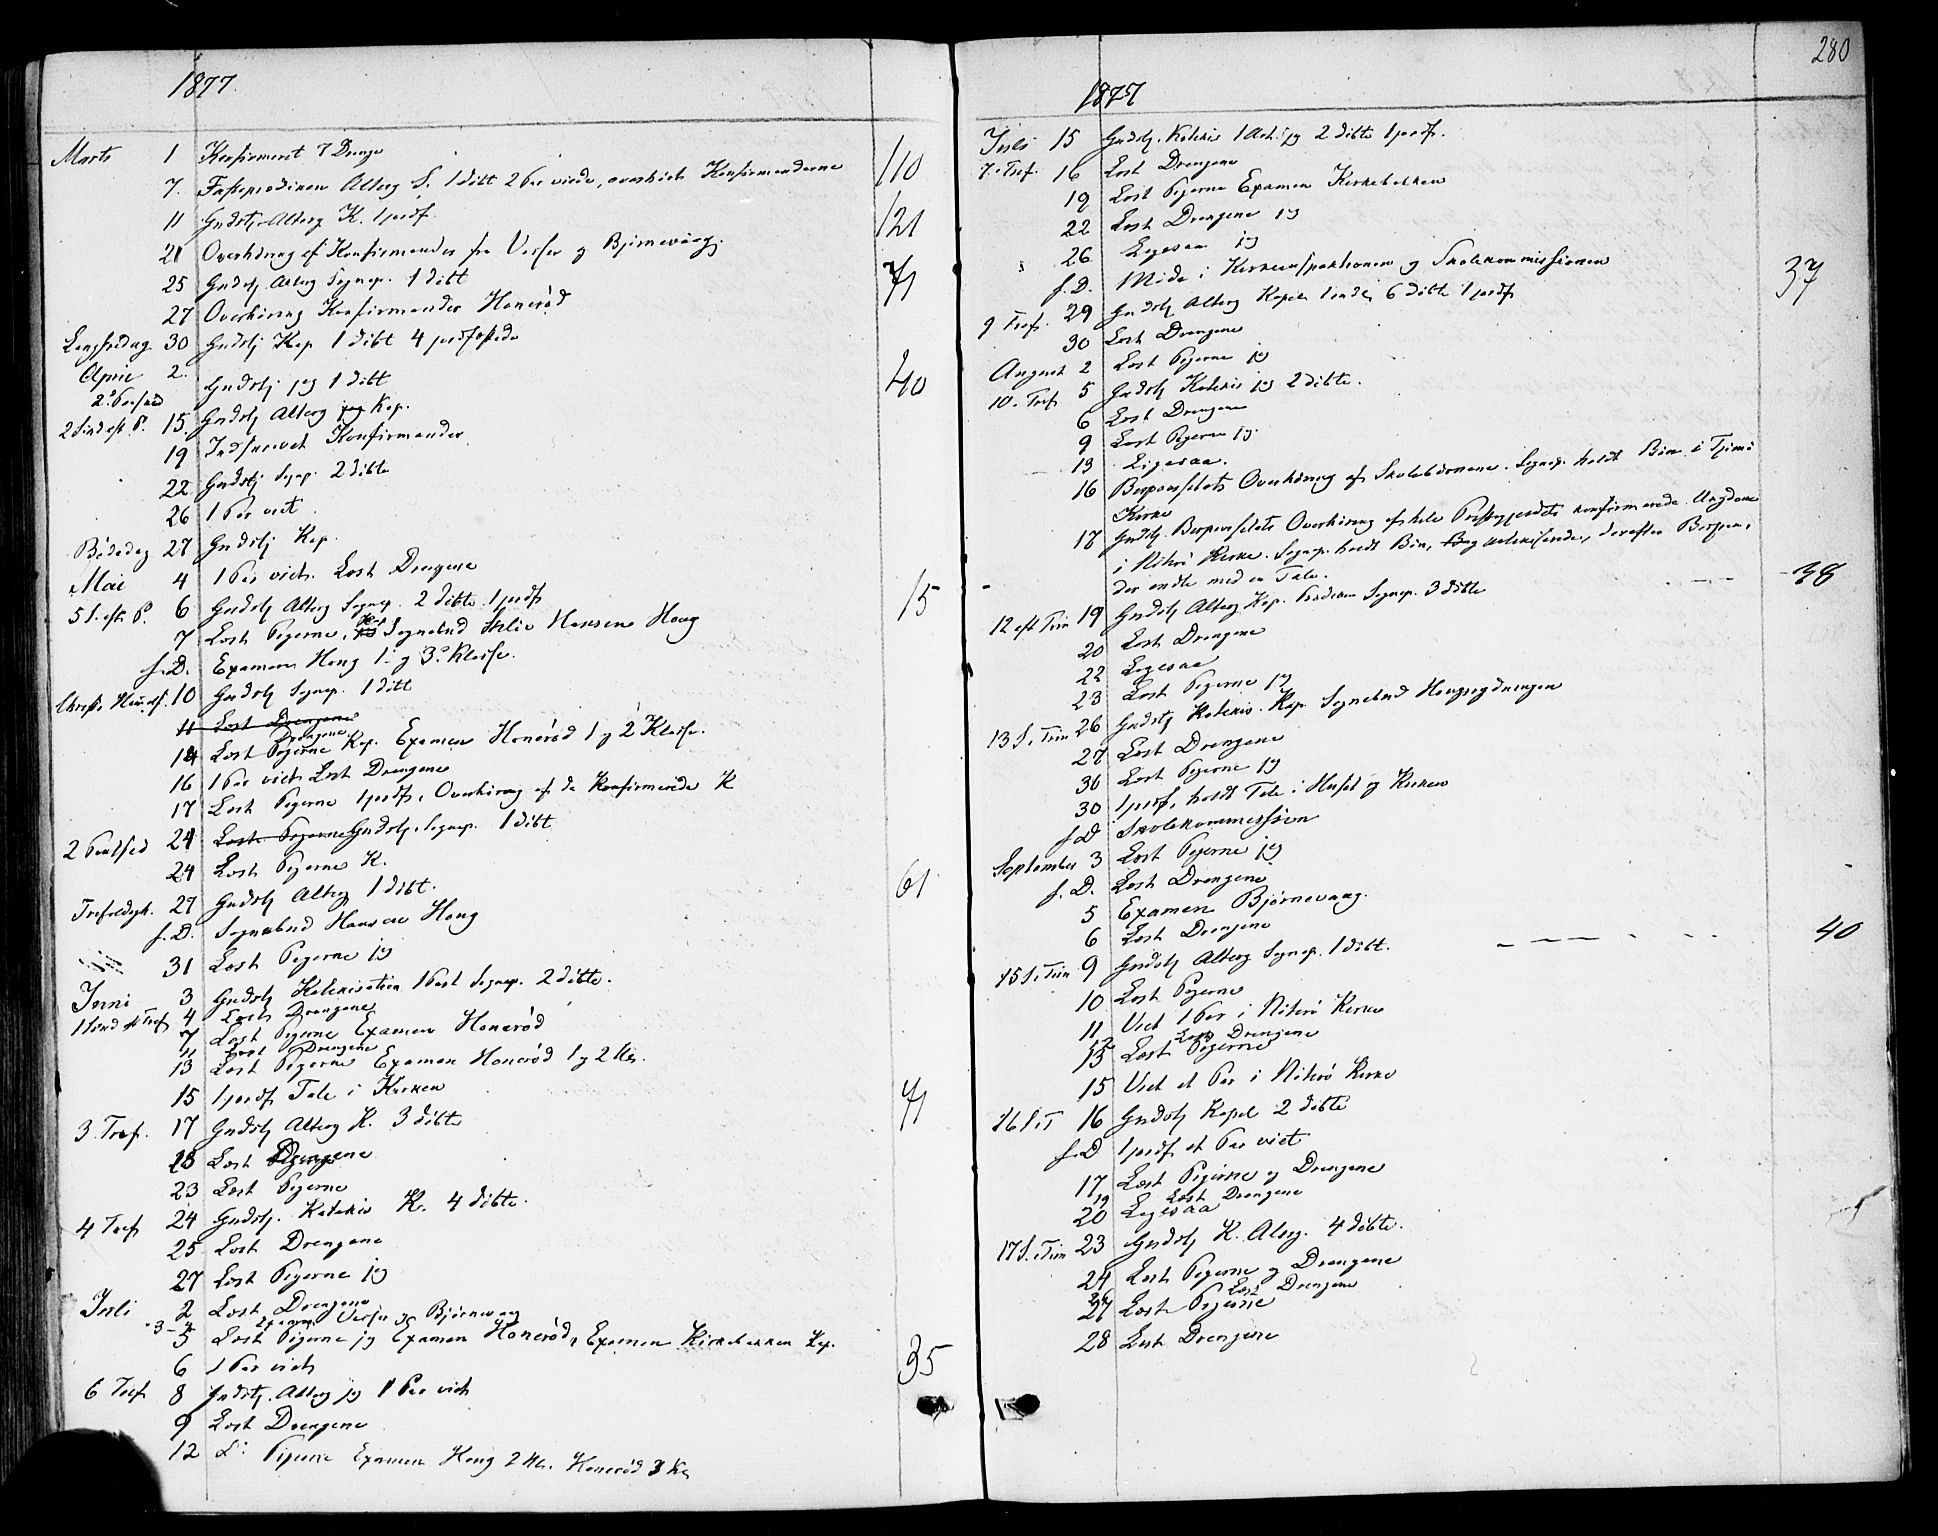 1877
Marts 1 Konfirmeret 7 Drenge
7. Fasteprediken Alterg S. 1 döbt 2 Par viede, overhörte Konfirmanderne 110
11 Gudstj. Alterg K. 1 jordf. 121
21 Overhöring af Konfirmander fra Vesser og Bjørnevaag.
25 Gudstj. Alterg Sognep. 1 döbt 71
27 Overhöring Konfirmander Hönerød
Langfredag 30 Gudstj Kap 1 döbt 4 jordfæstede
April 2. Gudstj jeg 1 döbt 40
2. Paasked
2 Sönd eft. P. 15. Gudstj Alterg Kap.
19 Indskrevet Konfirmander
22 Gudstj Sogn. 2 döbte
26 1 Par viet
Bededag 27 Gudstj Kap.
Mai 4 1 Par viet. Læst Drengene
5 S. eft P. 6 Gudstj Alterg Sognep. 2 döbte 1 jordf 15
7 Læst Pigerne, Kap Sognebud Hansen Haug
s. D. Examen Haug 1. og 3. Klasse.
Christi Himmelf. 10 Gudstj Sognep. 1 döbt
11 Læst Drengene
14 Læst Drengene Pigerne Kap. Examen Hönerød 1 og 2 Klasse.
16 1 Par viet Læst Drengene
17 Læst Pigerne 1 jordf, Overhöring af de Konfirmerede K
2 Pintsed 21 Læst Pigerne Gudstj. Sognep. 1 döbt
24 Læst Pigerne K. 61
Trefoldigh. 27 Gudstj Alterg 1 döbt.
s. D. Sognebud Hansen Haug
31 Læst Pigerne jeg
Juni 3 Gudstj Katekisation Sognep. 2 döbte.
1 Sönd eft Tref 4 Læst Drengene
7 Læst Pigerne Examen Hönerød
11 Læst Drengene
13 Læst Pigerne Examen Hönerød 1 og 2 Kl.
15 1 jordf Tale i Kirken 71
3. Tref. 17 Gudstj Alterg K. 3 döbte
18 Læst Drengene
23 Læst Pigerne
4 Tref 24 Gudstj. Katekis K. 4 döbte.
25 Læst Drengene
27 Læst Pigerne jeg
Juli 2 Læst Drengene
3-4 Examen Vesser og Bjørnevaag
5 Læst Pigerne jeg Examen Hönerød, Examen Kirkebakken Kap. 35
6 1 Par viet
6 Tref 8 Gudstj. Alterg jeg 1 Par viet
9 Læst Drengene
12 d: Pigerne Examen Haug 2 Kl. Hönerød 3 Kl
280
1877
Juli 15 Gudstj. Katekis jeg 2 döbte 1 jordf.
7. Tref. 16 Læst Drengene
19 Læst Pigerne Examen Kirkebakken
22 Læst Drengene jeg
26 Ligesaa jeg
s. D. Möde i Kirkeinspektionen og Skolekommissionen
9 Tref. 29 Gudstj Alterg Kapel 6 döbte 1 jordf 37
30 Læst Drengene
August 2 Læst Pigerne jeg
10. Tref 5 Gudstj Katekis jeg 2 döbte.
6 Læst Drengene
9 Læst Pigerne jeg.
13 Ligesaa.
16 Bispens Overhöring af Skolebörnene. Sognep. holdt Bön i Tjömö
Kirke
17 Gudstj. Overhöring af hele Præstegjeldets konfirmerede Ungdom
i Nöterö Kirke. Sognep. holdt Bön, katekiserede, derefter Bispen,
der endte med en Tale. 38
12 eft Trin 19 Gudstj Alterg Kap. Sognep. 3 döbte
20 Læst Drengene
22 Ligesaa
23 Læst Pigerne jeg
13 S. Trin 26 Gudstj Katekis. Kap Sognebud
27 Læst Drengene
30 Læst Pigerne jeg
30 1 jordf, holdt Tale i Huset og Kirken
s. D Skolekommission
September 3 Læst Pigerne jeg
s. D. Læst Drengene
5 Examen Bjørnevaag.
6 Læst Drengene
15 S. Trin 9 Gudstj Alterg Sognep. 1 döbt. 40
10 Læst Pigerne
11 Viet 1 Par i Nöterö Kirke
12 Læst Drengene
13 Læst Pigerne
15 Viet et Par i Nöterö Kirke
16 S. T 16 Gudstj Kapel 2 döbte
s. D 1 jordf et Par viet
17 Læst Pigerne og Drengene
19 Læst Drengene
20 Ligesaa
17 S. Trin 23 Gudstj K. Alterg. 4 döbte.
24 Læst Pigerne og Drengene
26 Læst Drengene
27 Læst Pigerne
28 Læst Drengene